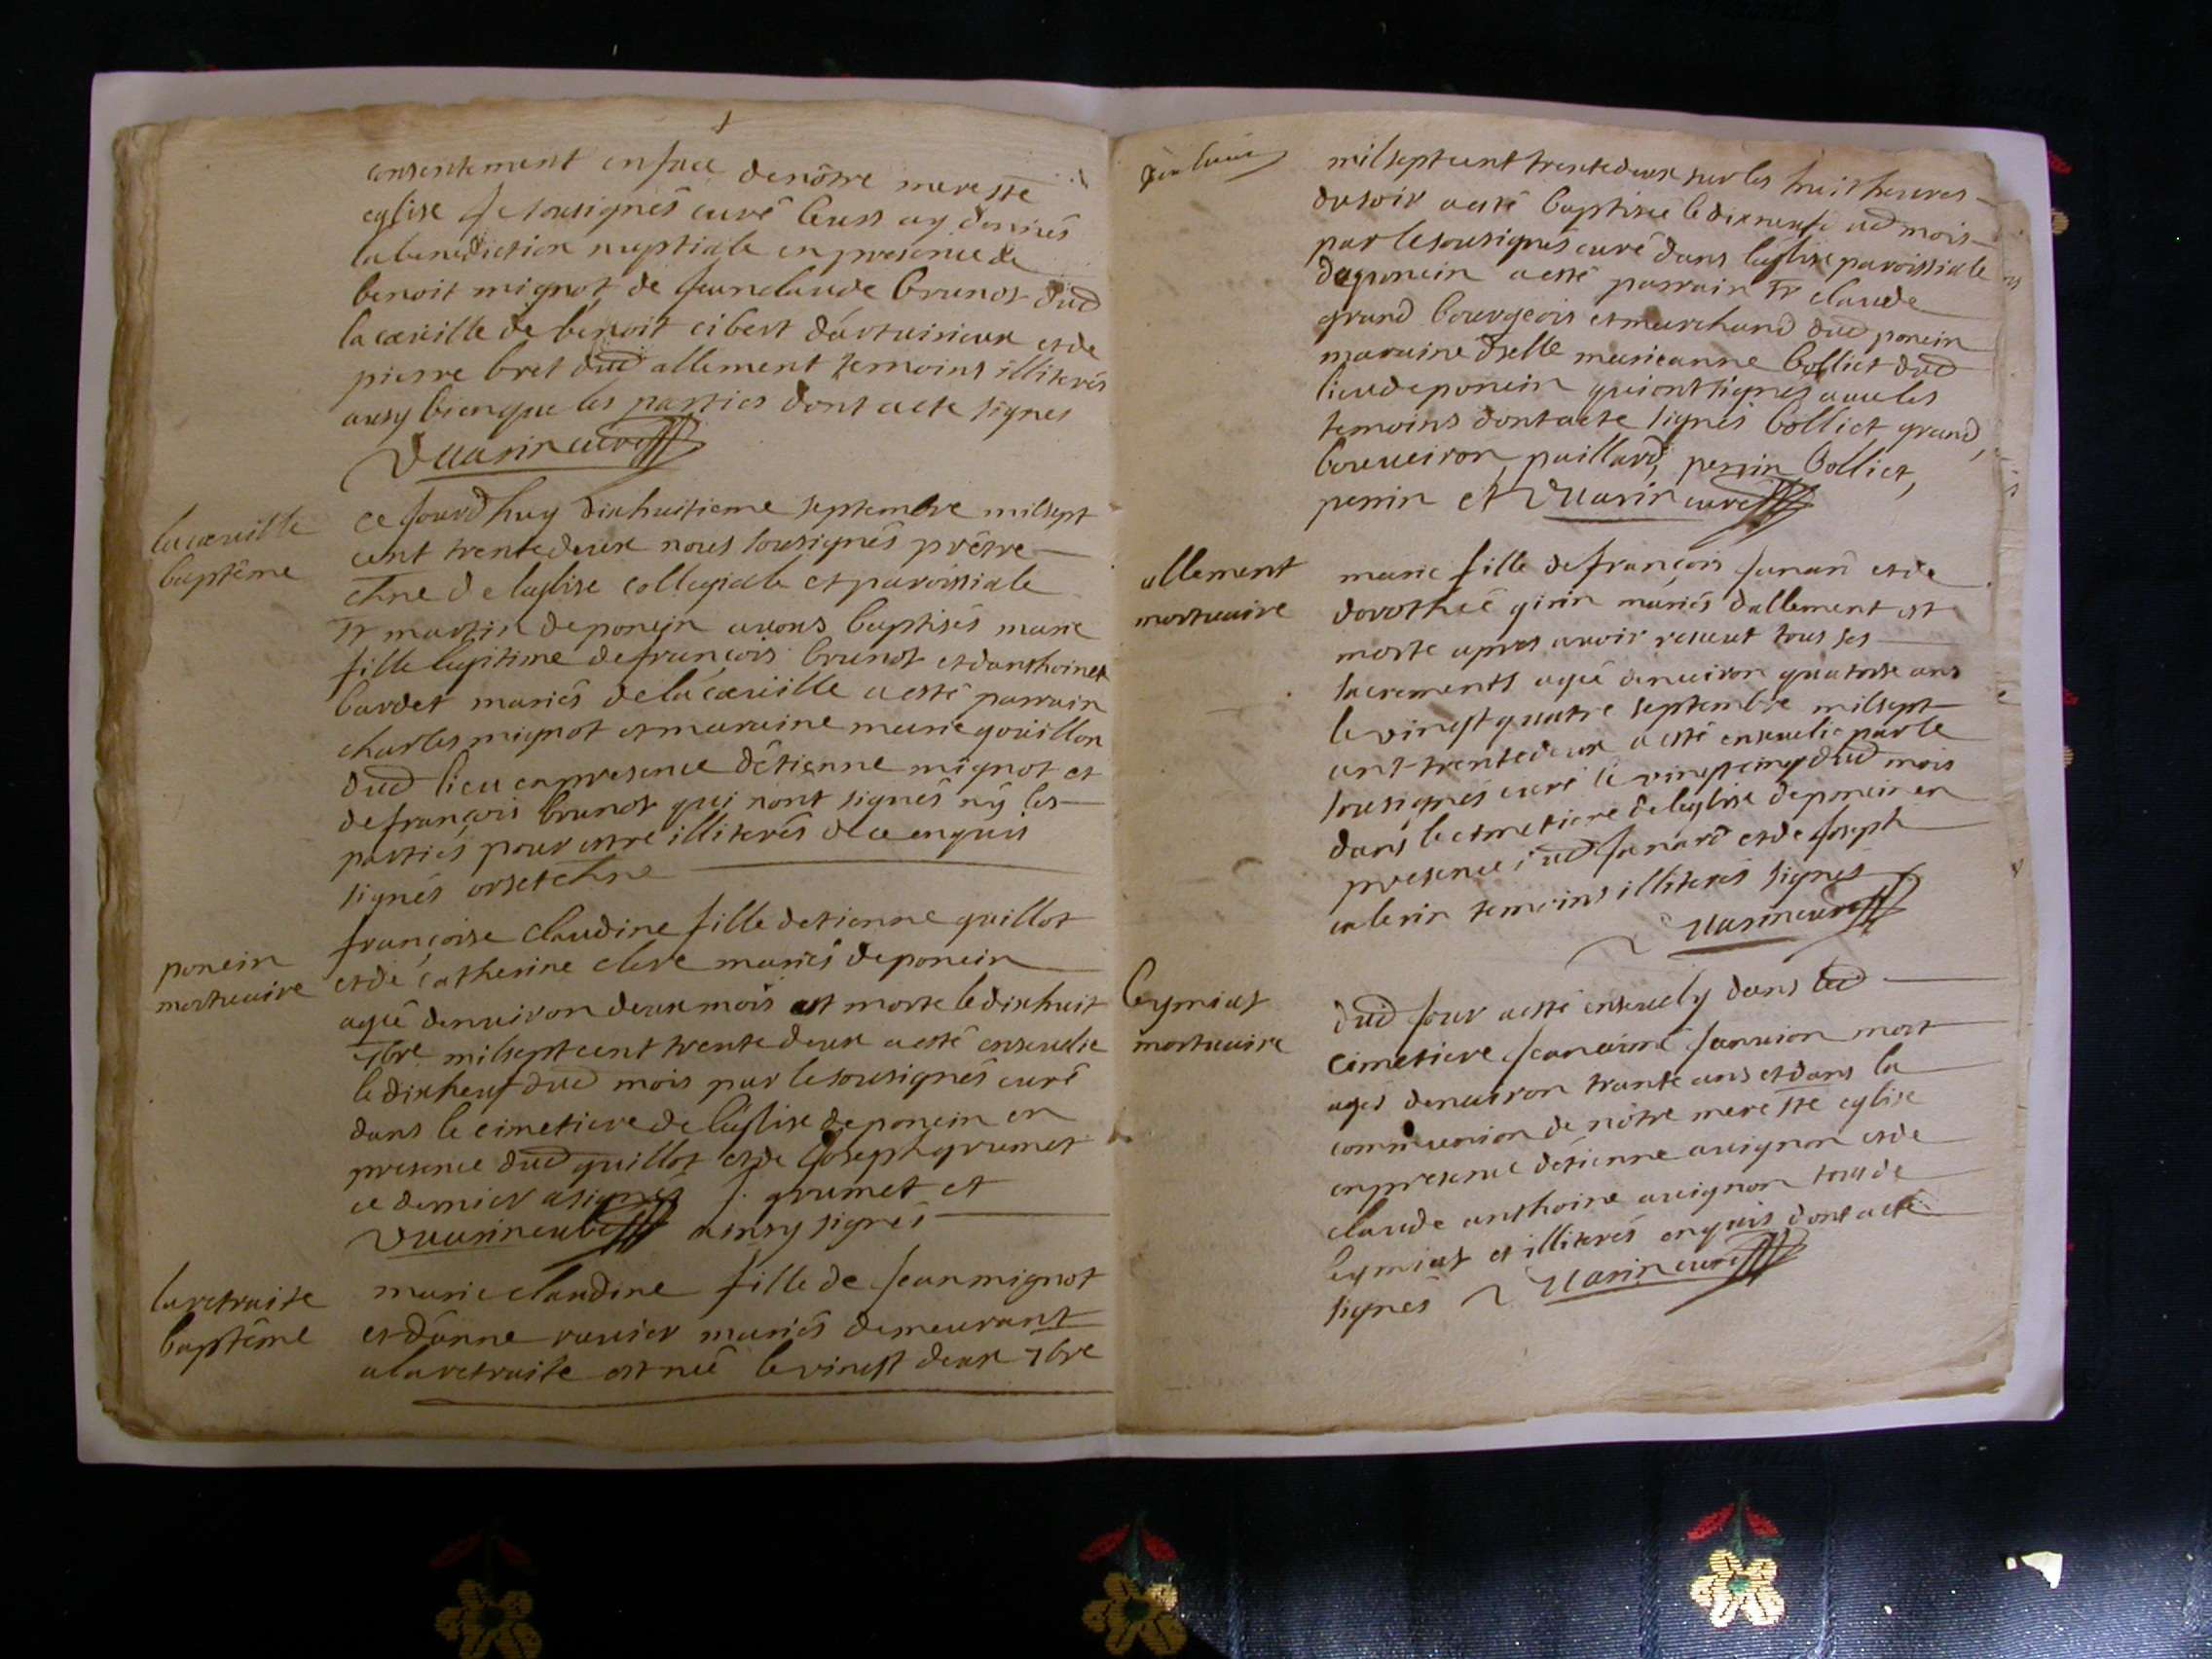 consentement en face de nôtre mere ste
eglise Je sousignés curé leurs ay donnés
la benediction nuptiale en presence de
benoit mignot de Jean claude brunot dud
la coeuille de benoit cibert d'artuirieux et de
pierre bret dud allement temoins illiterés
ausy bien que les parties dont acte signes
Vuarin curé
la coeuille
baptême
ce Jourdhuy dixhuitieme septembre milsept
cent trentedeux nous sousignés prêtre
chne de leglise collegiale et paroissiale
st martin de poncin avons baptisés marie
fille legitime de françois brunot et danthoinet
bardet mariés de la coeuille a esté parrain
charles mignot et maraine marie goüillon
dud lieu en presence d'étienne mignot et
de françois brunot qui nont signés ny les
parties pour estre illiterés de ce enquis
signés orset chne
poncin
mortuaire
françoise claudine fille detienne guillot
et de catherine clerc mariés de poncin
agée denuiron deux mois est morte le dixhuit
7bre milsept cent trente deux a esté enseuelie
le dixneuf dud mois par le sousignés curé
dans le cimetiere de l'église de poncin en
presence dud guillot et de Joseph grumet
ce dernier a signés J. grumet et
Vuarin curé ainsy signés
la retraite
baptême
marie claudine fille de Jean mignot
et d'anne ravier mariés demeurant
a la retraite est née le vingt deux 7bre
milsept cent trente deux sur les huit heures
du soir a esté baptisée le dix neuf ud mois
par le sousignés curé dans l'église paroissiale
de poncin a esté parrain sr claude
grand bourgeois et marchand dud poncin
maraine dselle marieanne bolliet dud
lieu de poncin qui ont signés auec les
temoins dont acte signés bolliet, grand,
bouueiron, paillard, perrin bolliet,
perrin et Vuarin curé
allement
mortuaire
marie fille de françois Janard et de
dorothée girin mariés dallement est
morte apres auoir receut tous ses
sacrements agée denuiron quatorse ans
le vingt quatre septembre milsept
cent trentedeux a esté enseuelie par le
sousignés curé le vingtcinq dud mois
dans le cimetiere de leglise de poncin en
presence dud Janard et de Joseph
caterin temoins illiterés signés
Vuarin curé
leymiat
mortuaire
dud Jour a esté enseuely dans led
cimetiere Jean aimé Januion mort
agés denuiron trante ans et dans la
communion de nôtre mere ste eglise
en presence d'étienne auignon et de
claude anthoine auignon tous de
leymiat et illiterés enquis dont acte
signés Vuarin curé